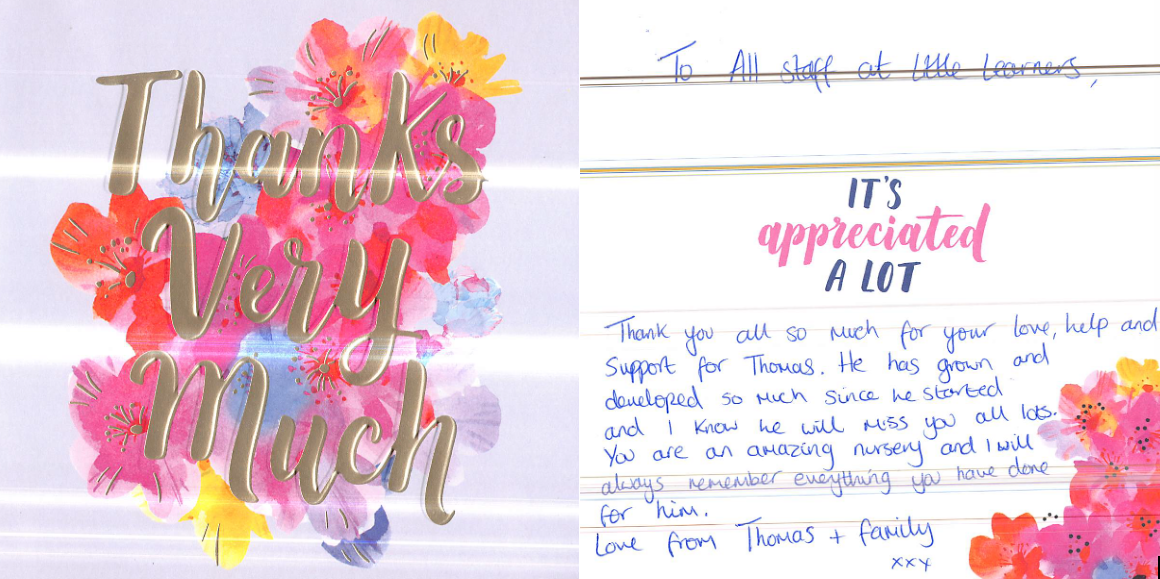 Thanks
Very
Much
To All staff at Little Learners,
IT'S
appreciated
A LOT
Thank you all so much for your love, help and
Support for Thomas. He has grown and
developed so much since he started
and I know he will miss you all lots.
You are an amazing nursery and I will
always remember everything you have done
for him.
Love from Thomas + family
xxx